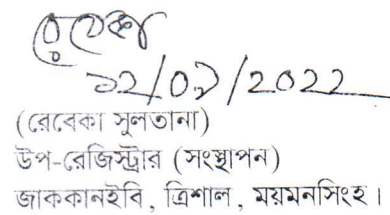 ১২/০৯/২০২২
(রেবেকা সুলতানা)
উপ-রেজিস্ট্রার (সংস্থাপন)
জাককানইবি, ত্রিশাল, ময়মনসিংহ।